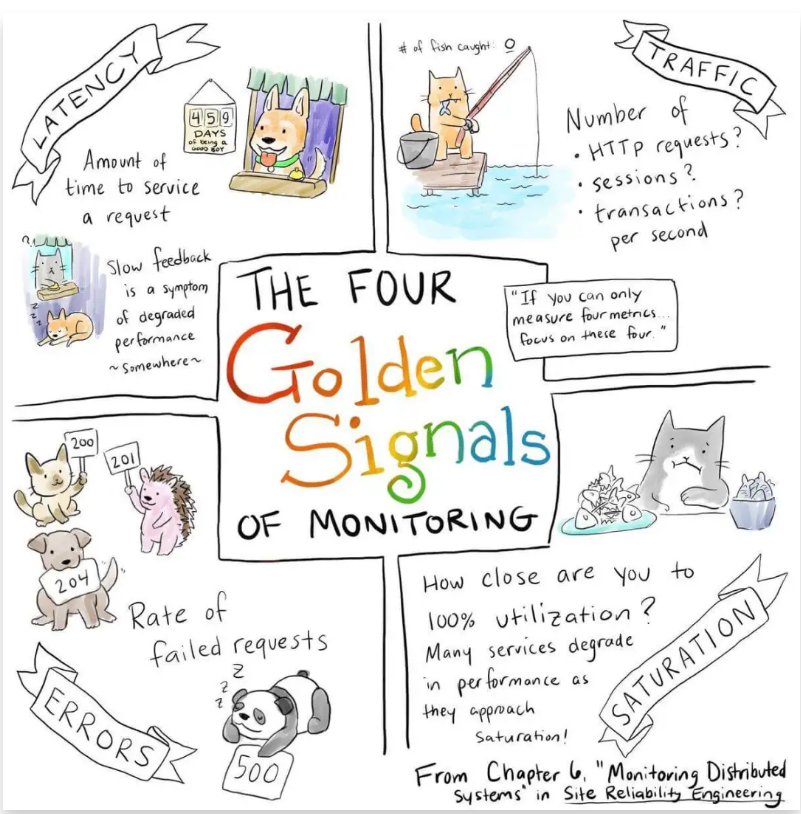 LATENCY
459
DAYS
of being a
GOOD BOY
Amount of
time to service
a request
Slow feedback
is a symptom
of degraded
performance
~Somewhere~
# of fish caught: 0
TRAFFIC
Number of
• HTTP requests?
• sessions?
• transactions?
per second
THE FOUR
Golden
Signals
OF MONITORING
"If you can only
measure four metrics...
focus on these four."
200
201
204
Rate of
failed requests
z
z
z
500
ERRORS
How close are you to
100% utilization?
Many services degrade
in performance as
they approach
saturation!
SATURATION
From Chapter 6, "Monitoring Distributed
Systems" in Site Reliability Engineering